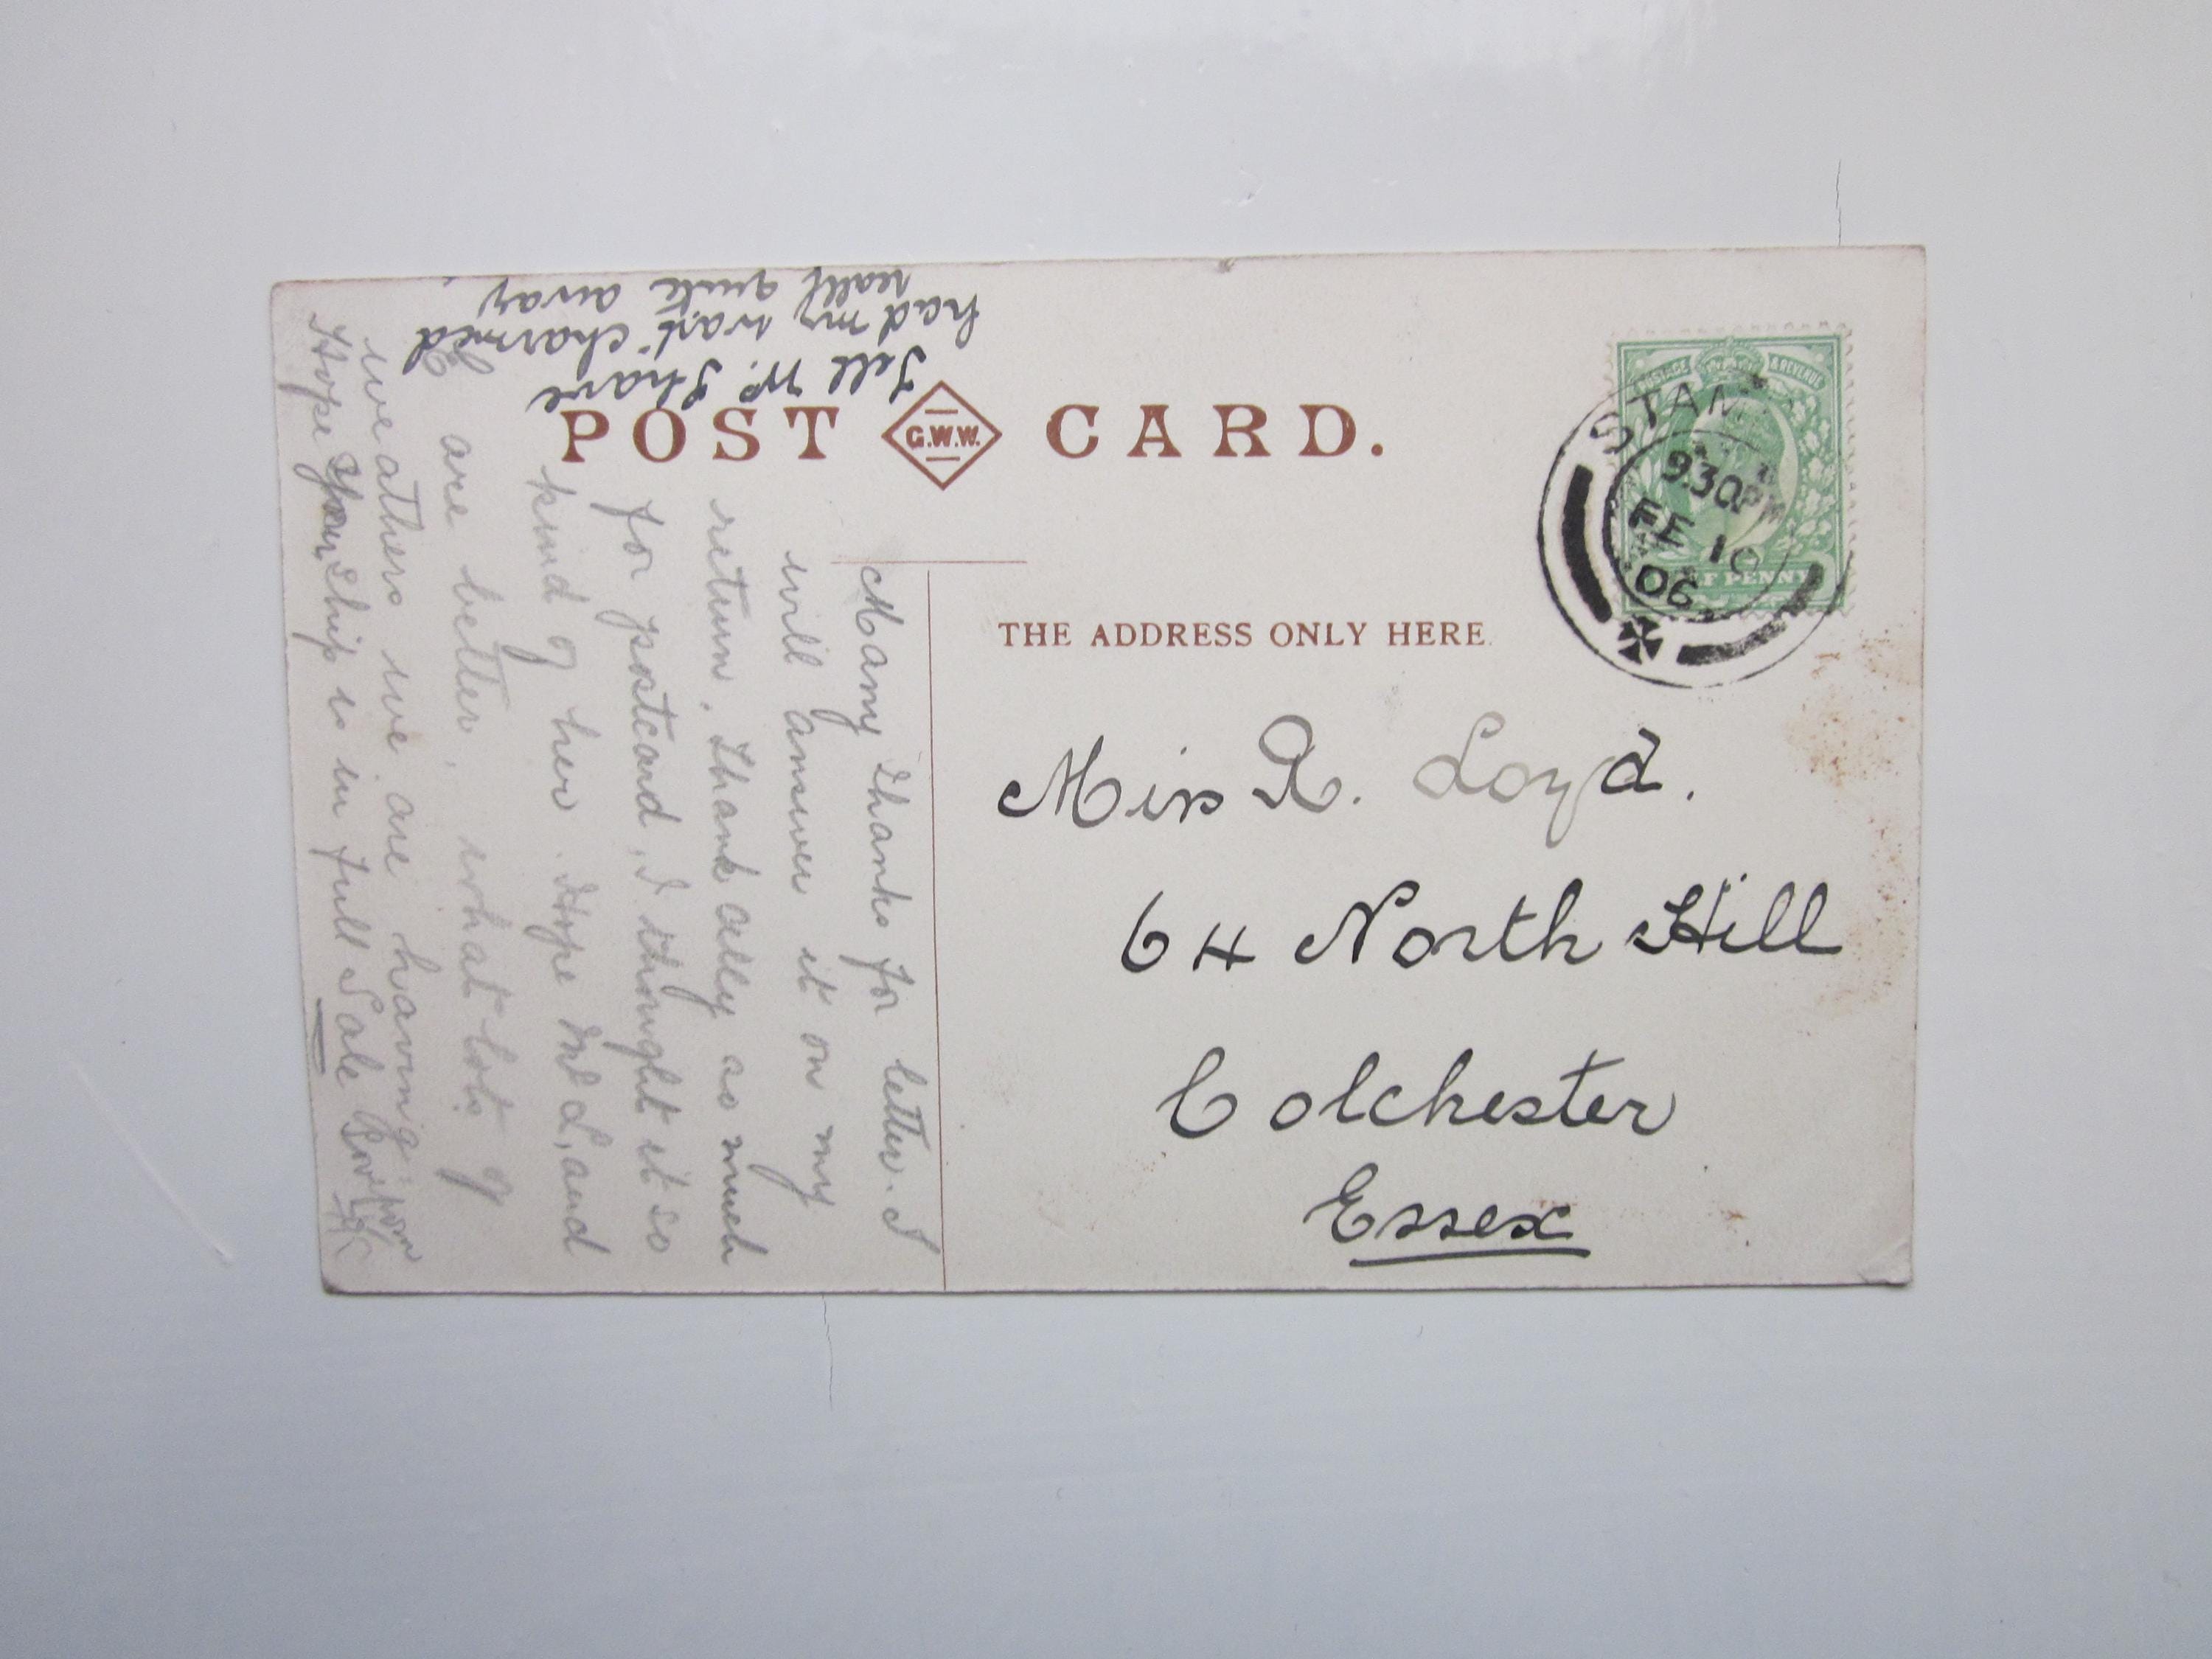 POST G.W.W. CARD.
THE ADDRESS ONLY HERE.
POSTAGE & REVENUE
HALF PENNY
STAM
9.30PM
FE 10
06
Miss R. Loyd.
64 North Hill
Colchester
Essex
Many Thanks for letter. I
will answer it on my
return. Thank Olly as much
for postcard, I thought it so
kind of her. Hope Mr L, and
E are better, what lots of
weathers we are having
Hope Your Ship is in full Sale
Tell Mr. Share
had my wart charmed
really quite away